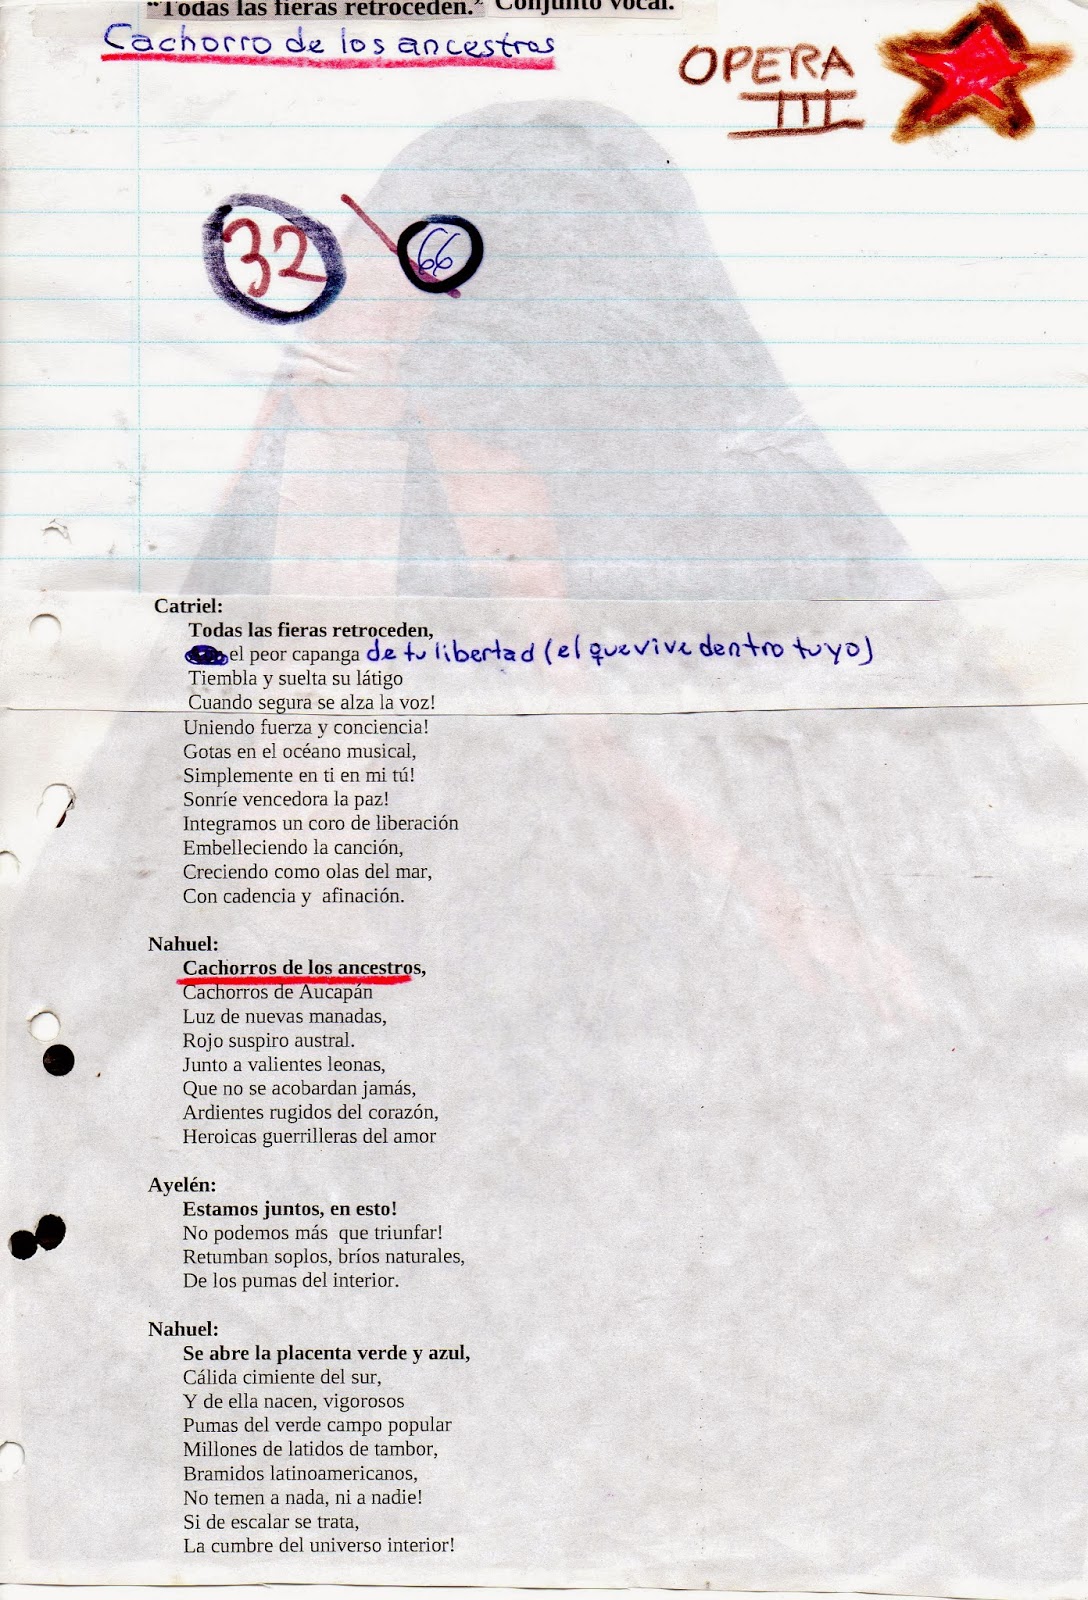 “Todas las fieras retroceden.” Conjunto vocal.
Cachorro de los ancestros
OPERA
III
32
66
Catriel:
Todas las fieras retroceden,
el peor capanga de tu libertad (el que vive dentro tuyo)
Tiembla y suelta su látigo
Cuando segura se alza la voz!
Uniendo fuerza y conciencia!
Gotas en el océano musical,
Simplemente en ti en mi tú!
Sonríe vencedora la paz!
Integramos un coro de liberación
Embelleciendo la canción,
Creciendo como olas del mar,
Con cadencia y  afinación.
Nahuel:
Cachorros de los ancestros,
Cachorros de Aucapán
Luz de nuevas manadas,
Rojo suspiro austral.
Junto a valientes leonas,
Que no se acobardan jamás,
Ardientes rugidos del corazón,
Heroicas guerrilleras del amor
Ayelén:
Estamos juntos, en esto!
No podemos más  que triunfar!
Retumban soplos, bríos naturales,
De los pumas del interior.
Nahuel:
Se abre la placenta verde y azul,
Cálida cimiente del sur,
Y de ella nacen, vigorosos
Pumas del verde campo popular
Millones de latidos de tambor,
Bramidos latinoamericanos,
No temen a nada, ni a nadie!
Si de escalar se trata,
La cumbre del universo interior!